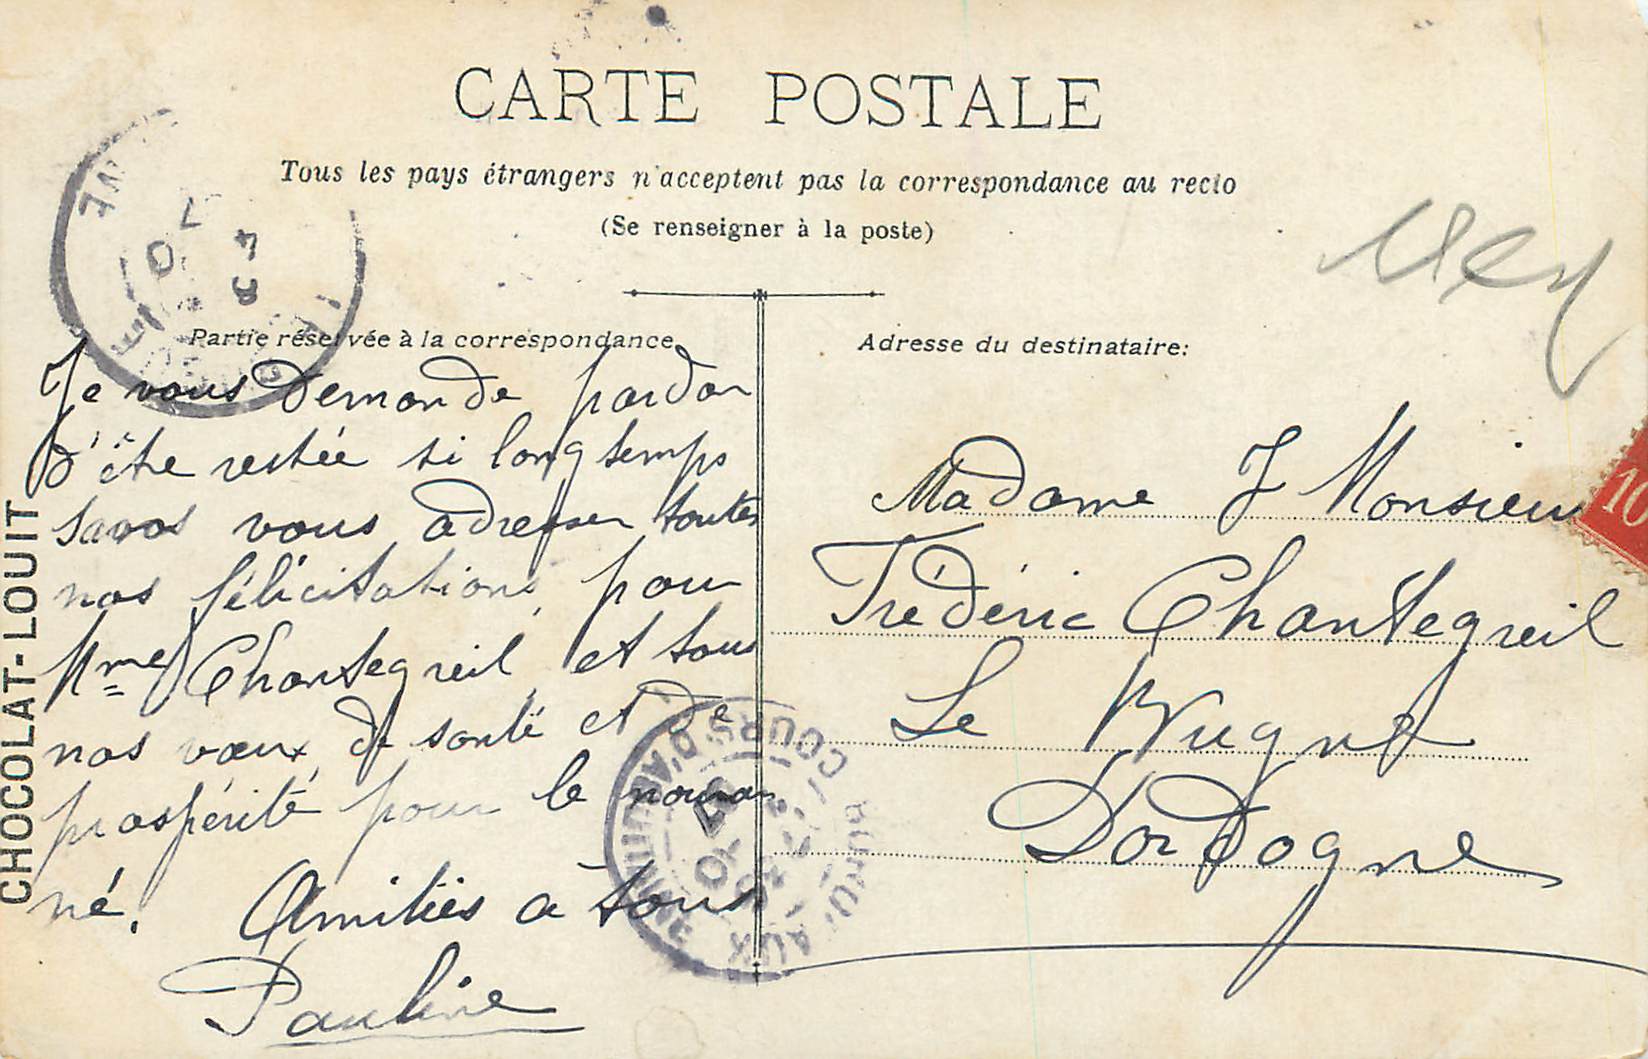 CARTE POSTALE
Tous les pays étrangers n'acceptent pas la correspondance au recto
(Se renseigner à la poste)
Partie réservée à la correspondance
Je vous demande pardon
d'être restée si longtemps
sans vous adresser toutes
nos félicitations pour
Mme Chantegreil et tous
nos vœux de santé et de
prospérité pour le nouveau
né. Amitiés à tous
Pauline
Adresse du destinataire:
Madame & Monsieur
Frédéric Chantegreil
Le Bugue
Dordogne
CHOCOLAT-LOUIT
10
BORDEAUX
COURS D'AQUITAINE